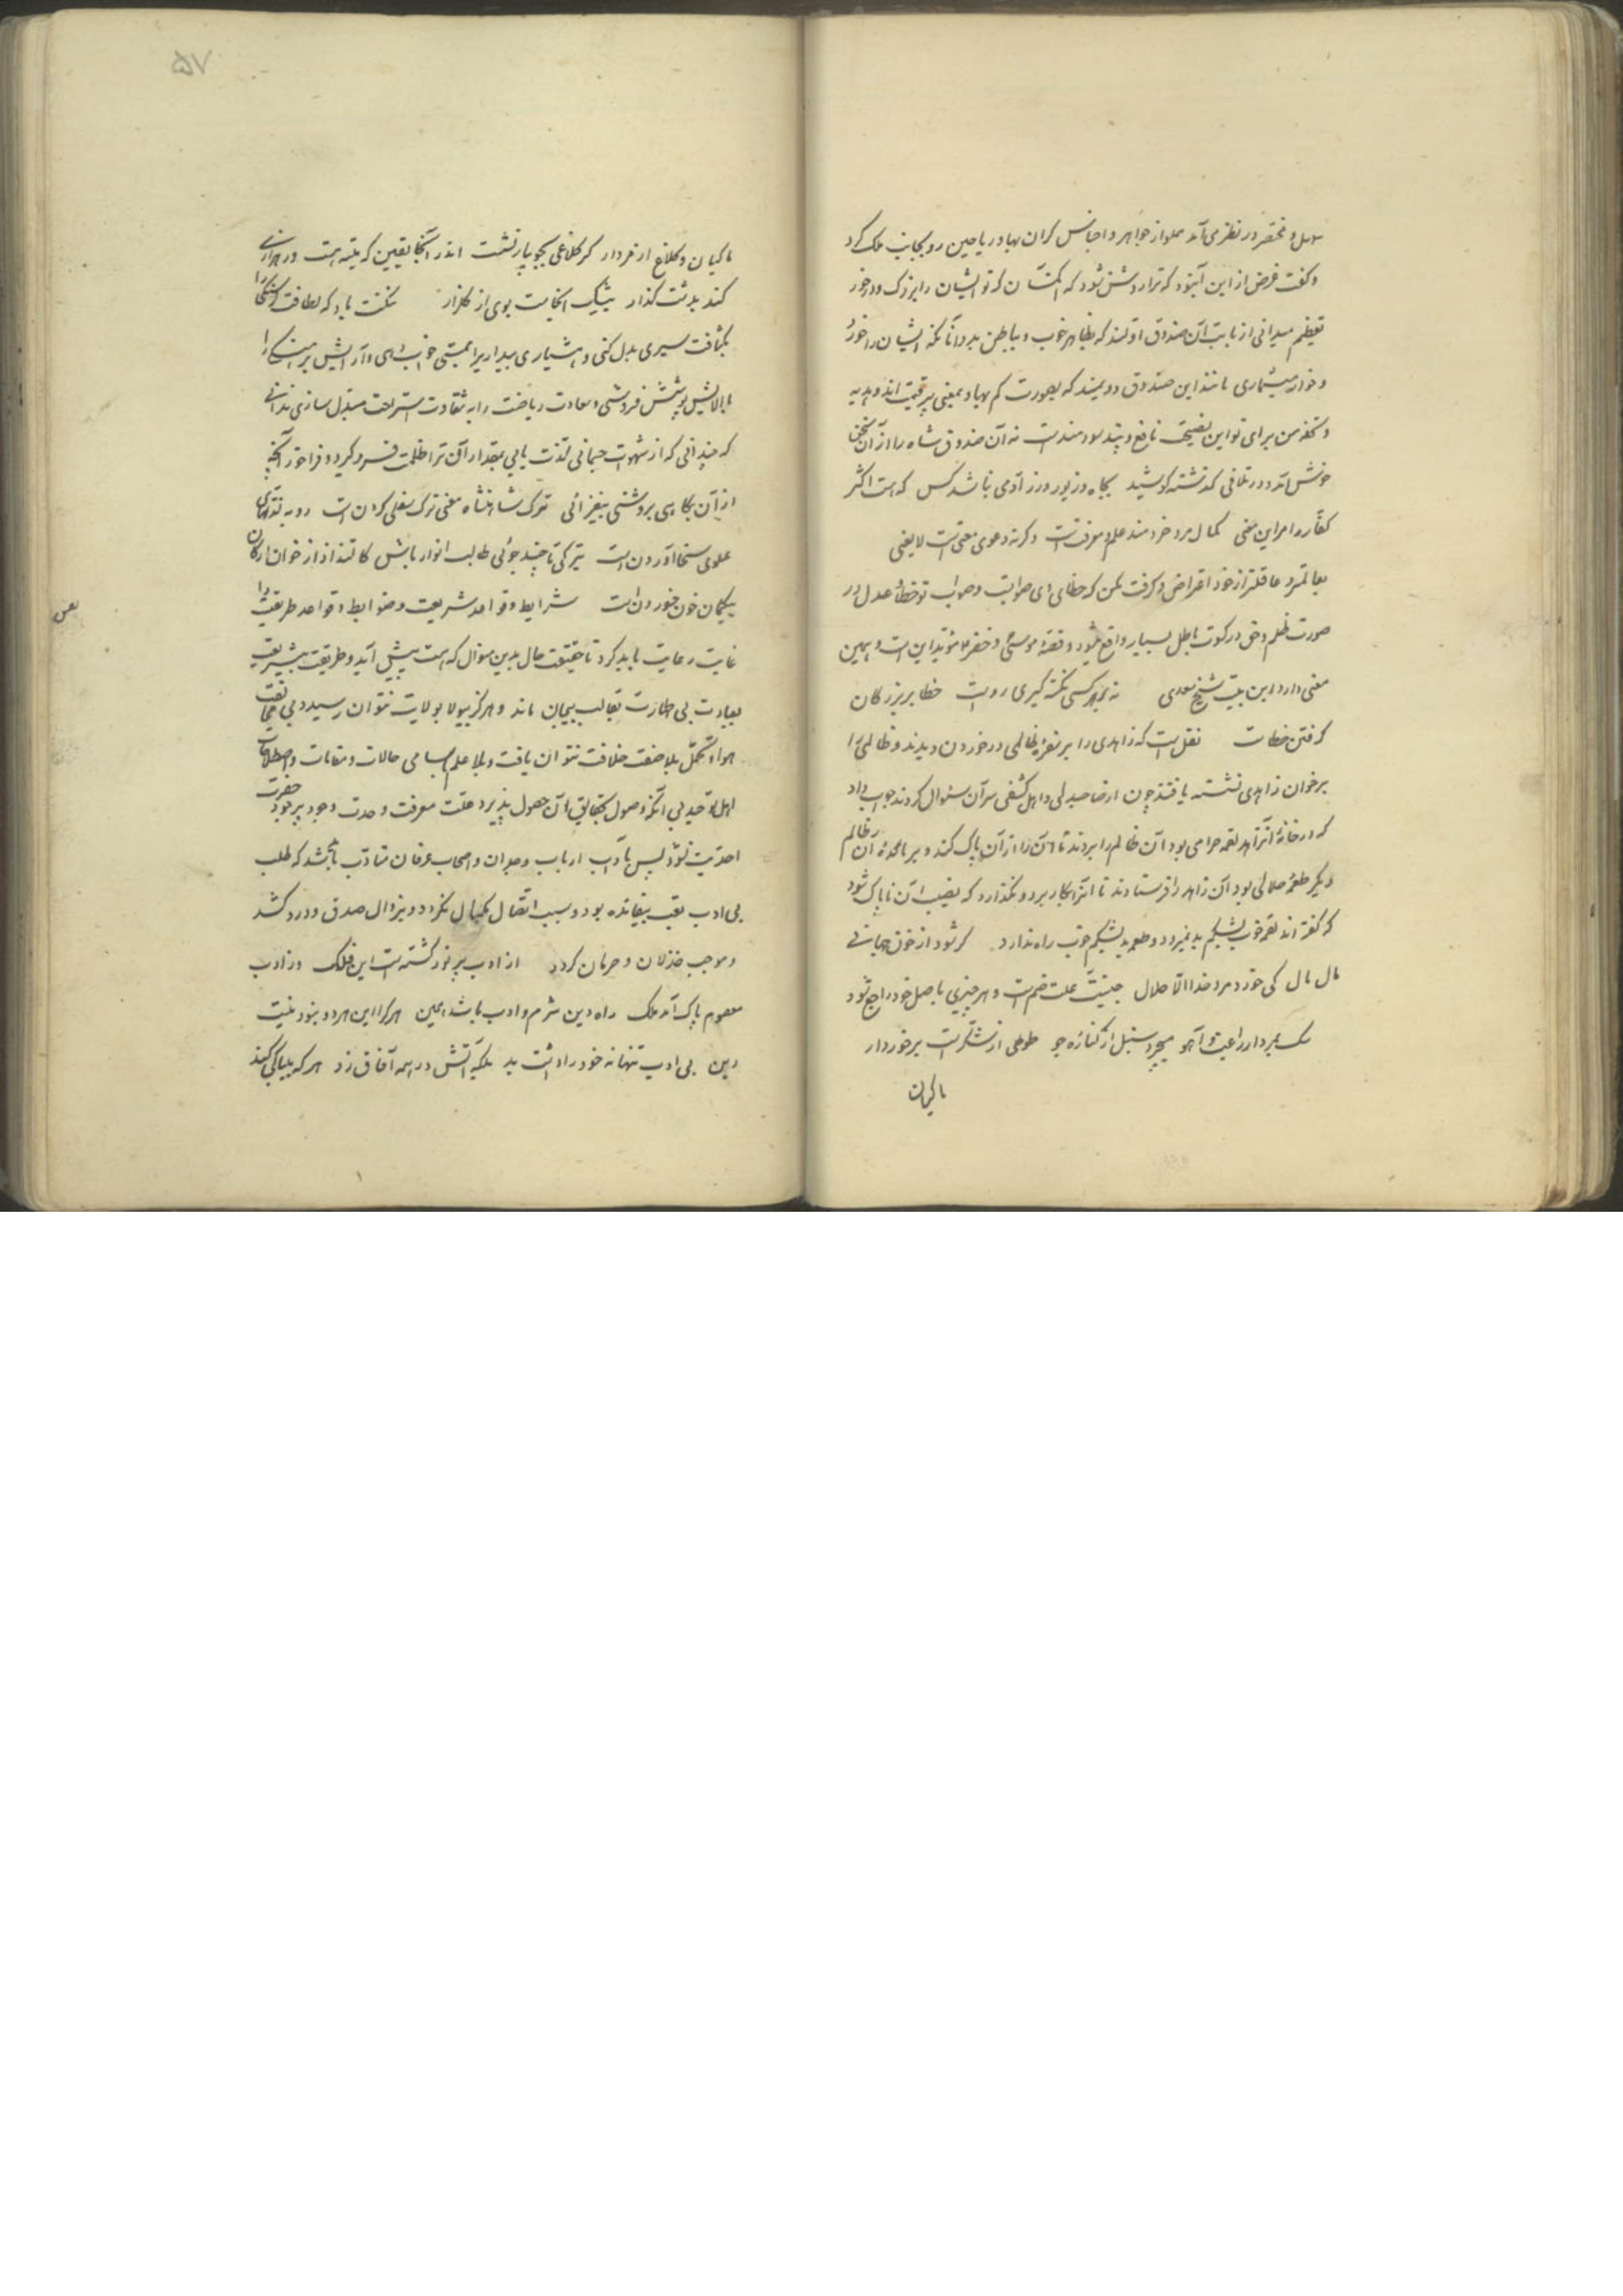 سهل و مختصر در نظر می آمد مملو از جواهر و اجناس گران بها و ریاحین رو بجانب ملک کرد
و گفت غرض از این آن بود که ترا روشن شود که آن کسان که تو ایشان را بزرگ و درخور
تعظیم میدانی از بابت آن صندوق اولند که بظاهر خوب و بباطن بد و آنانکه ایشان را خورد
و خوار میشماری مانند این صندوق دویمند که بصورت کم بها و بمعنی پر قیمت اند و هدیه
و تحفه من برای تو این نصیحت نافع و پند سودمندست نه آن صندوق شاه را از آن سخن
خوش آمد و در تلافی گذشته کوشید بجاه و زیور و زر آدمی نباشد کس که هست اکثر
کفار را مر این معنی کمال مرد خردمند علم و معرفتست و گرنه دعوی معنی است لایعنی
بعالمتر و عاقلتر از خود اعتراض و گرفت مکن که خطای او صوابست و صواب تو خطا عدل در
صورت ظلم و حق در کسوت باطل بسیار واقع میشود و قصهٔ موسی و خضر مؤید این است و همین
معنی دارد این بیت شیخ سعدی نه بهر کسی نکته گیری رواست خطا بر بزرگان
گرفتن خطاست نقل ست که زاهدی را بر سفرهٔ ظالمی در خوردن دیدند و ظالمی را
بر خوان زاهدی نشسته یافتند چون از صاحبدلی و اهل کشفی سر آن سئوال کردند جواب داد
که در خانهٔ آن زاهد لقمهٔ حرامی بود آن ظالم را بردند تا آن را از آن پاک کند و بر مائدهٔ آن ظالم
دیگر طعمهٔ حلالی بود آن زاهد را فرستادند تا آنرا بکار برد و نگذارد که نصیب آن ناپاک شود
که گفته اند لقمه خوب بشکم بد نمیرود و طعمه بد بشکم خوب راه ندارد گر شود از خون جهانی
مال مال کی خورد مرد خدا الا حلال جنسیت علت ضم ست و هر چیزی باصل خود راجع شود
سگ بمردار راغب و آهو میچرد سنبل از کنارهٔ جو طوطی از شکرست برخوردار
ماکیان
۵۷
ماکیان و کلاغ از مردار گر کلاغی بجویبار نشست اندر آنجا یقین که میته هست ور هزاری
کند بدشت گذار بیشک آنجاست بوی از گلزار
بکثافت سیری بدل کنی و هشیاری بیداری را بمستی خواب دهی و آرایش برهنگی را
بآلایش پوشش فروشی و سعادت ریاضت را به شقاوت استراحت مبدل سازی ندانی
که چندانی که از شهوات جسمانی لذت یابی بمقدار آن ترا ظلمت فرو گیرد و فراخور آنچه
از آن بکاهی بروشنی بیفزائی ترک شاهنشاه معنی ترک سفلی کردن است رو به لذتهای
علوی سخا آوردن است تیرگی تا چند جوئی طالب انوار باش کالتذاذ از خوان ارکان
بیگمان خون خوردن است شرایط و قواعد شریعت و ضوابط و قواعد طریقت را
غایت رعایت باید کرد تا حقیقت حال بدین منوال که هست پیش آید و طریقت بیشریعت
بعبادت بی طهارت بقالب بیجان ماند و هرگز بیولا بولایت نتوان رسید و بی مخالفت
هوا و تحمل بلا خلعت خلافت نتوان یافت و بلا علم اسامی حالات و مقامات و اصطلاحات
اهل توحید بی آنکه وصول بحقایق آن حصول پذیرد علت معرفت وحدت وجود پر جود حضرت
احدیت نشود پس بآداب ارباب وجدان و اصحاب عرفان متأدب باید شد که طلب
بی ادب تعب بیفایده بود و سبب اتصال بکمال نگردد و بزوال صدق و درد کشد
و موجب خذلان و حرمان گردد از ادب پر نور گشته ست این فلک وز ادب
معصوم پاک آمد ملک راه دین شرم و ادب باشد همین هر کرا این هر دو نبود نیست
دین بی ادب تنها نه خود را داشت بد بلکه آتش در همه آفاق زد هر که بیباکی کند